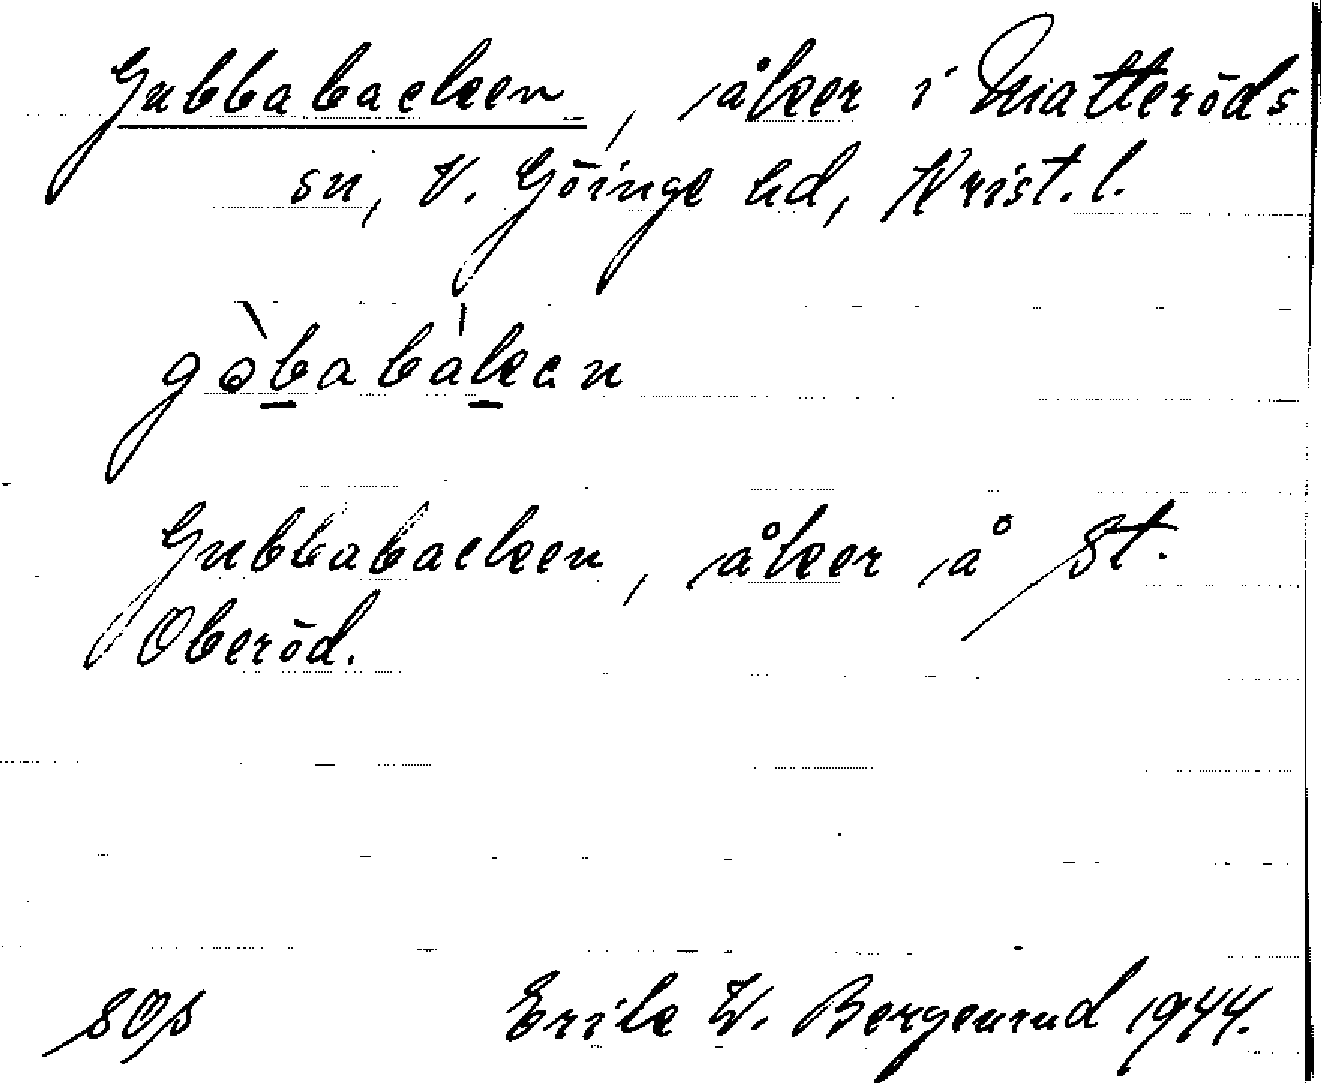 Gubbabacken, åker i Matteröds
sn, V. Göinge hd, Krist. l.
gòbabàkan
Gubbabacken, åker å St.
Oberöd.
SOs
Erik W. Bergenrud 1944.